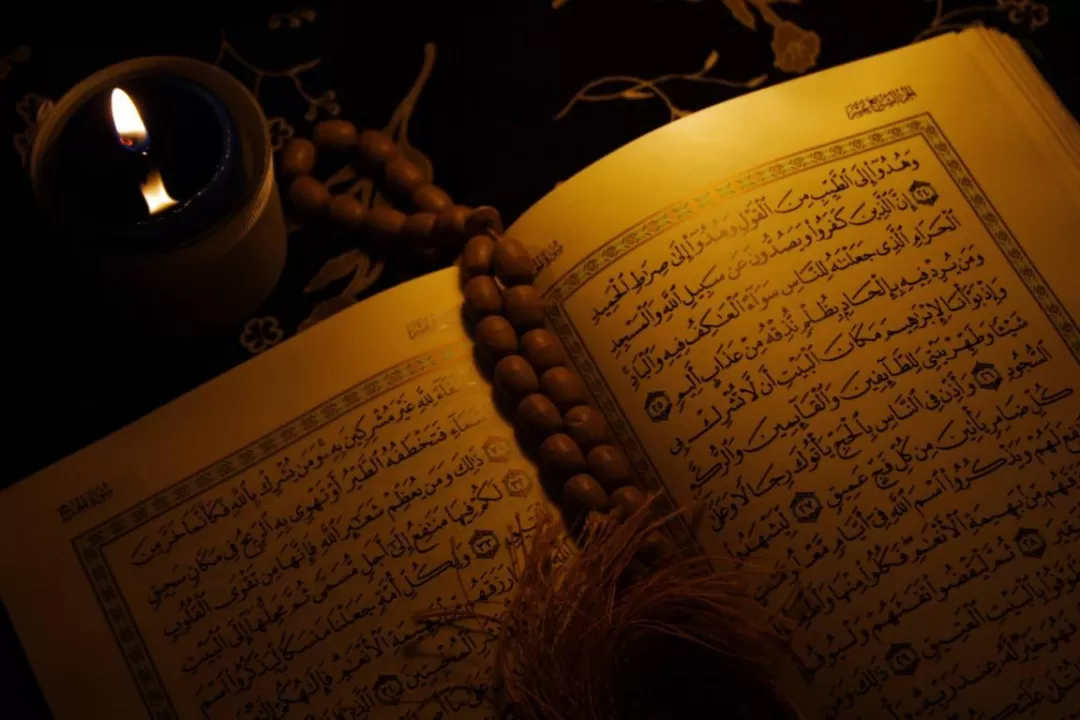 الجزء السابع عشر
وَهُدُوٓا۟ إِلَى ٱلطَّيِّبِ مِنَ ٱلْقَوْلِ وَهُدُوٓا۟ إِلَىٰ صِرَٰطِ ٱلْحَمِيدِ
٢٤ إِنَّ ٱلَّذِينَ كَفَرُوا۟ وَيَصُدُّونَ عَن سَبِيلِ ٱللَّهِ وَٱلْمَسْجِدِ
ٱلْحَرَامِ ٱلَّذِى جَعَلْنَٰهُ لِلنَّاسِ سَوَآءً ٱلْعَٰكِفُ فِيهِ وَٱلْبَادِ
وَمَن يُرِدْ فِيهِ بِإِلْحَادٍۭ بِظُلْمٍ نُّذِقْهُ مِنْ عَذَابٍ أَلِيمٍ ٢٥
وَإِذْ بَوَّأْنَا لِإِبْرَٰهِيمَ مَكَانَ ٱلْبَيْتِ أَن لَّا تُشْرِكْ بِى
شَيْـًٔا وَطَهِّرْ بَيْتِىَ لِلطَّآئِفِينَ وَٱلْقَآئِمِينَ وَٱلرُّكَّعِ
ٱلسُّجُودِ ٢٦ وَأَذِّن فِى ٱلنَّاسِ بِٱلْحَجِّ يَأْتُوكَ رِجَالًا وَعَلَىٰ
كُلِّ ضَامِرٍ يَأْتِينَ مِن كُلِّ فَجٍّ عَمِيقٍ ٢٧ لِّيَشْهَدُوا۟
لَهُمْ وَيَذْكُرُوا۟ ٱسْمَ ٱللَّهِ فِىٓ أَيَّامٍ
مِّنۢ بَهِيمَةِ ٱلْأَنْعَٰمِ فَكُلُوا۟ مِنْهَا
٢٨ ثُمَّ لْيَقْضُوا۟ تَفَثَهُمْ وَلْيُوفُوا۟
بِٱلْبَيْتِ ٱلْعَتِيقِ ٢٩ ذَٰلِكَ وَمَن
فَهُوَ خَيْرٌ لَّهُۥ عِندَ رَبِّهِۦ
سورة الحج
لِلَّهِ غَيْرَ مُشْرِكِينَ بِهِۦ وَمَن يُشْرِكْ بِٱللَّهِ فَكَأَنَّمَا خَرَّ مِنَ
فَتَخْطَفُهُ ٱلطَّيْرُ أَوْ تَهْوِى بِهِ ٱلرِّيحُ فِى مَكَانٍ سَحِيقٍ
٣١ ذَٰلِكَ وَمَن يُعَظِّمْ شَعَٰٓئِرَ ٱللَّهِ فَإِنَّهَا مِن تَقْوَى ٱلْقُلُوبِ
٣٢ لَكُمْ فِيهَا مَنَٰفِعُ إِلَىٰٓ أَجَلٍ مُّسَمًّى ثُمَّ مَحِلُّهَآ إِلَى ٱلْبَيْتِ
٣٣ وَلِكُلِّ أُمَّةٍ جَعَلْنَا مَنسَكًا لِّيَذْكُرُوا۟ ٱسْمَ
رَزَقَهُم مِّنۢ بَهِيمَةِ ٱلْأَنْعَٰمِ فَإِلَٰهُكُمْ
ٱلْمُخْبِتِينَ ٣٤